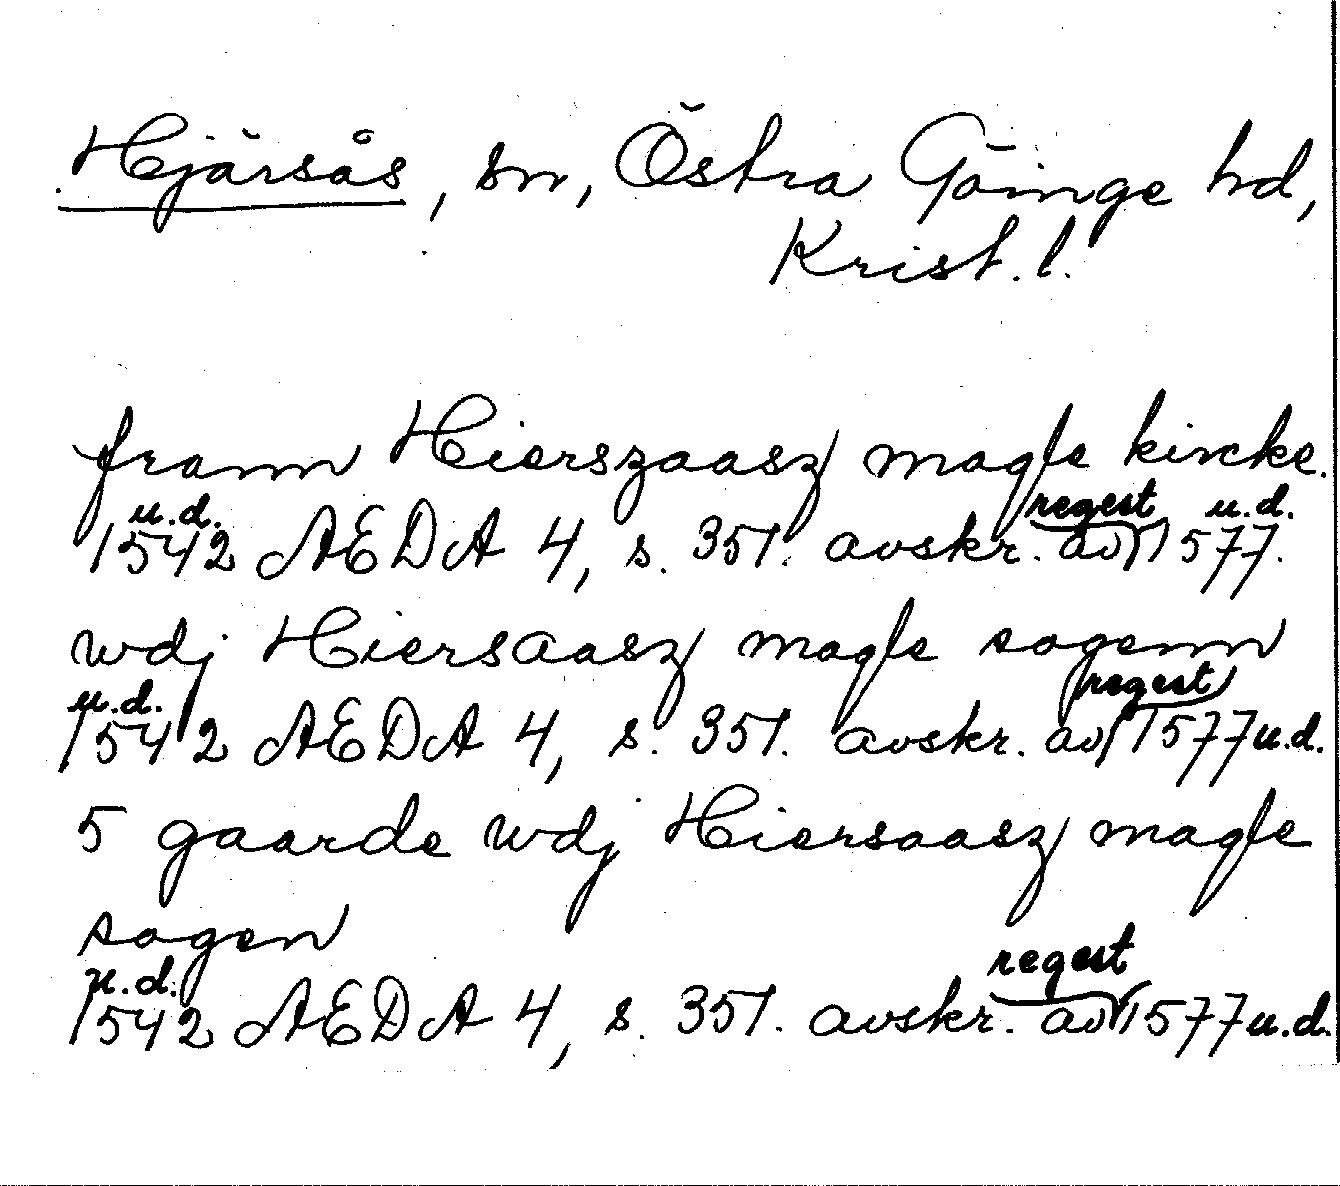 Hjärsås, sn, Östra Göinge hd,
Krist. l.
framn Hierszaasz magle kircke.
u.d. regest u.d.
1542 AEDA 4, s. 351. avskr. av 1577.
wdj Hiersaasz magle sogenn
u.d. regest
1542 AEDA 4, s. 351. avskr. av 1577 u.d.
5 gaarde wdj Hiersaasz magle
sogen
u.d. regest
1542 AEDA 4, s. 351. avskr. av 1577 u.d.